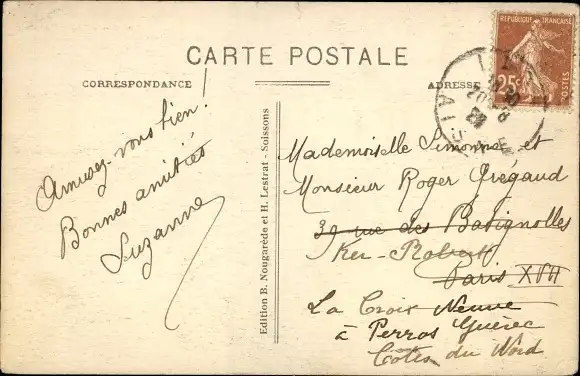 CARTE POSTALE
CORRESPONDANCE
ADRESSE
REPUBLIQUE FRANÇAISE
25c
POSTES
AISNE
Amusez-vous bien!
Bonnes amitiés
Suzanne
Edition B. Nougarède et H. Lestrat - Soissons
Mademoiselle Simonne et
Monsieur Roger Grégaud
39 rue des Batignolles
Ker-Robert
Paris XVII
La Croix Neuve
à Perros Guirec
Côtes du Nord